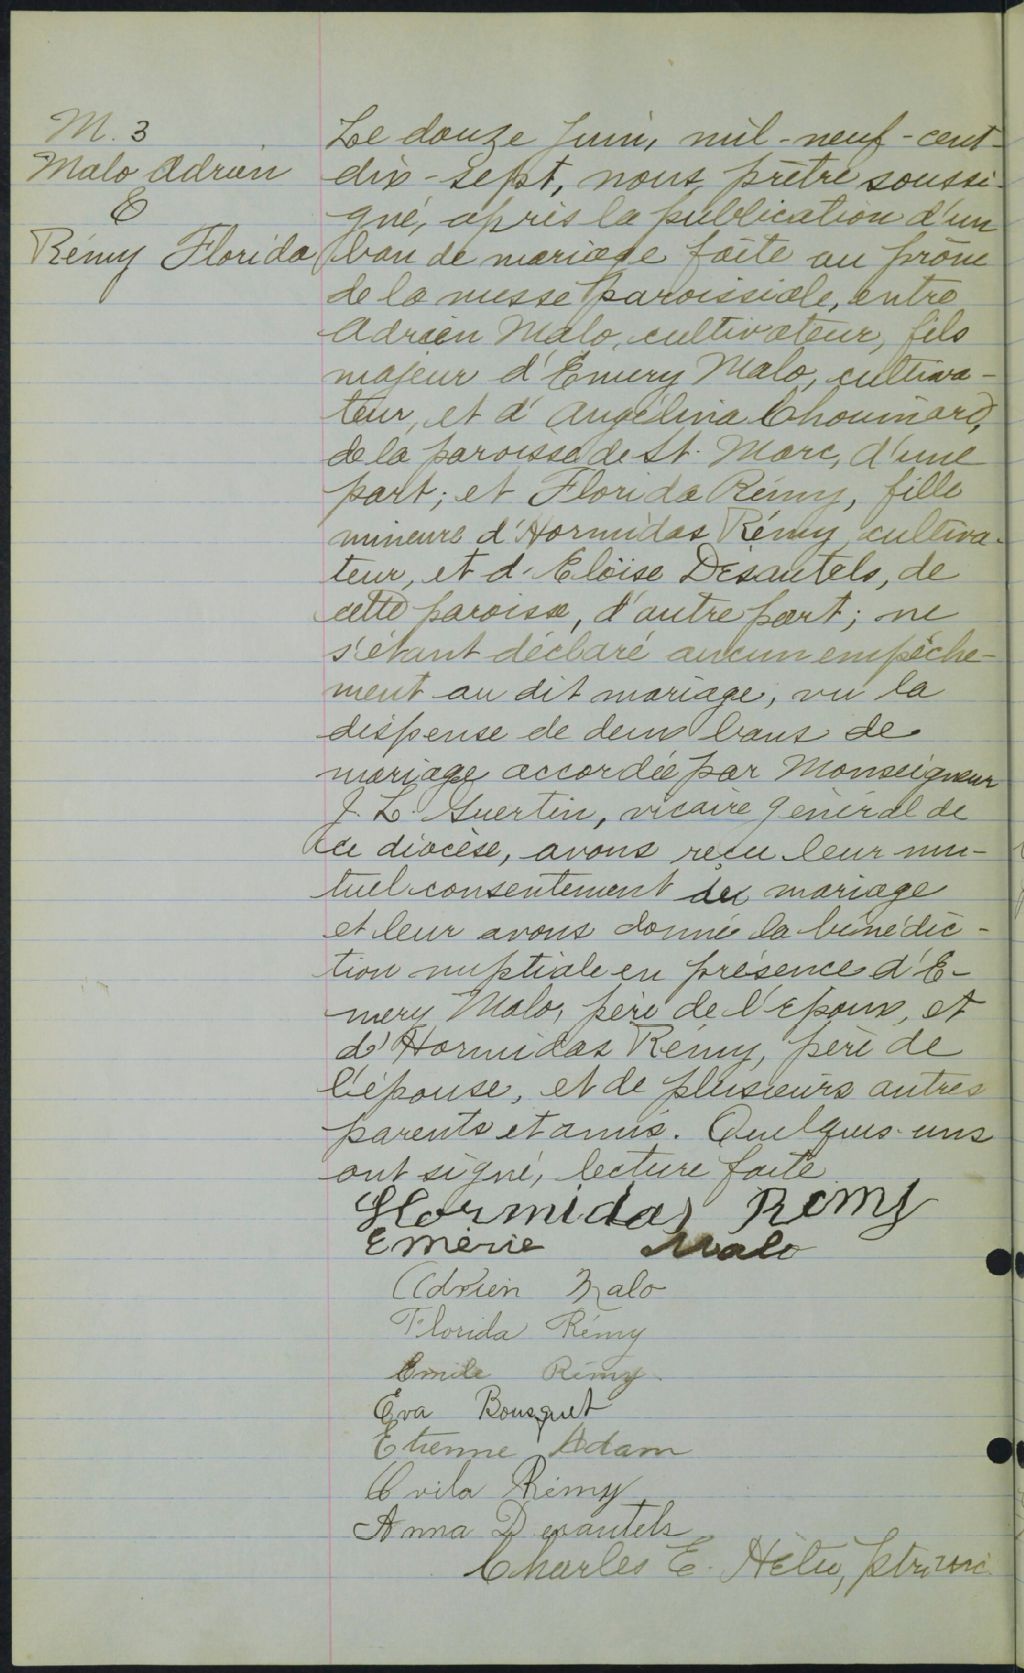 M. 3
Malo Adrien
&
Rémy Florida
Le douze Juin, mil-neuf-cent-
dix-sept, nous, prêtre soussi-
gné, après la publication d'un
ban de mariage faite au prône
de la messe paroissiale, entre
Adrien Malo, cultivateur, fils
majeur d'Emery Malo, cultiva-
teur, et d'Angélina Chouinard,
de la paroisse de St. Marc, d'une
part; et Florida Rémy, fille
mineure d'Hormidas Rémy, cultiva-
teur, et d'Eloïse Désautels, de
cette paroisse, d'autre part; ne
s'étant déclaré aucun empêche-
ment au dit mariage, vu la
dispense de deux bans de
mariage accordée par Monseigneur
J. L. Guertin, vicaire général de
ce diocèse, avons reçu leur mu-
tuel consentement de mariage
et leur avons donné la bénédic-
tion nuptiale en présence d'E-
mery Malo, père de l'époux, et
d'Hormidas Rémy, père de
l'épouse, et de plusieurs autres
parents et amis. Quelques-uns
ont signé, lecture faite
Hormidas Rémy
Emérie Malo
Adrien Malo
Florida Rémy
Emile Rémy
Eva Bousquet
Etienne Adam
Ovila Rémy
Anna Desautels
Charles E. Hétu, ptre, vic.